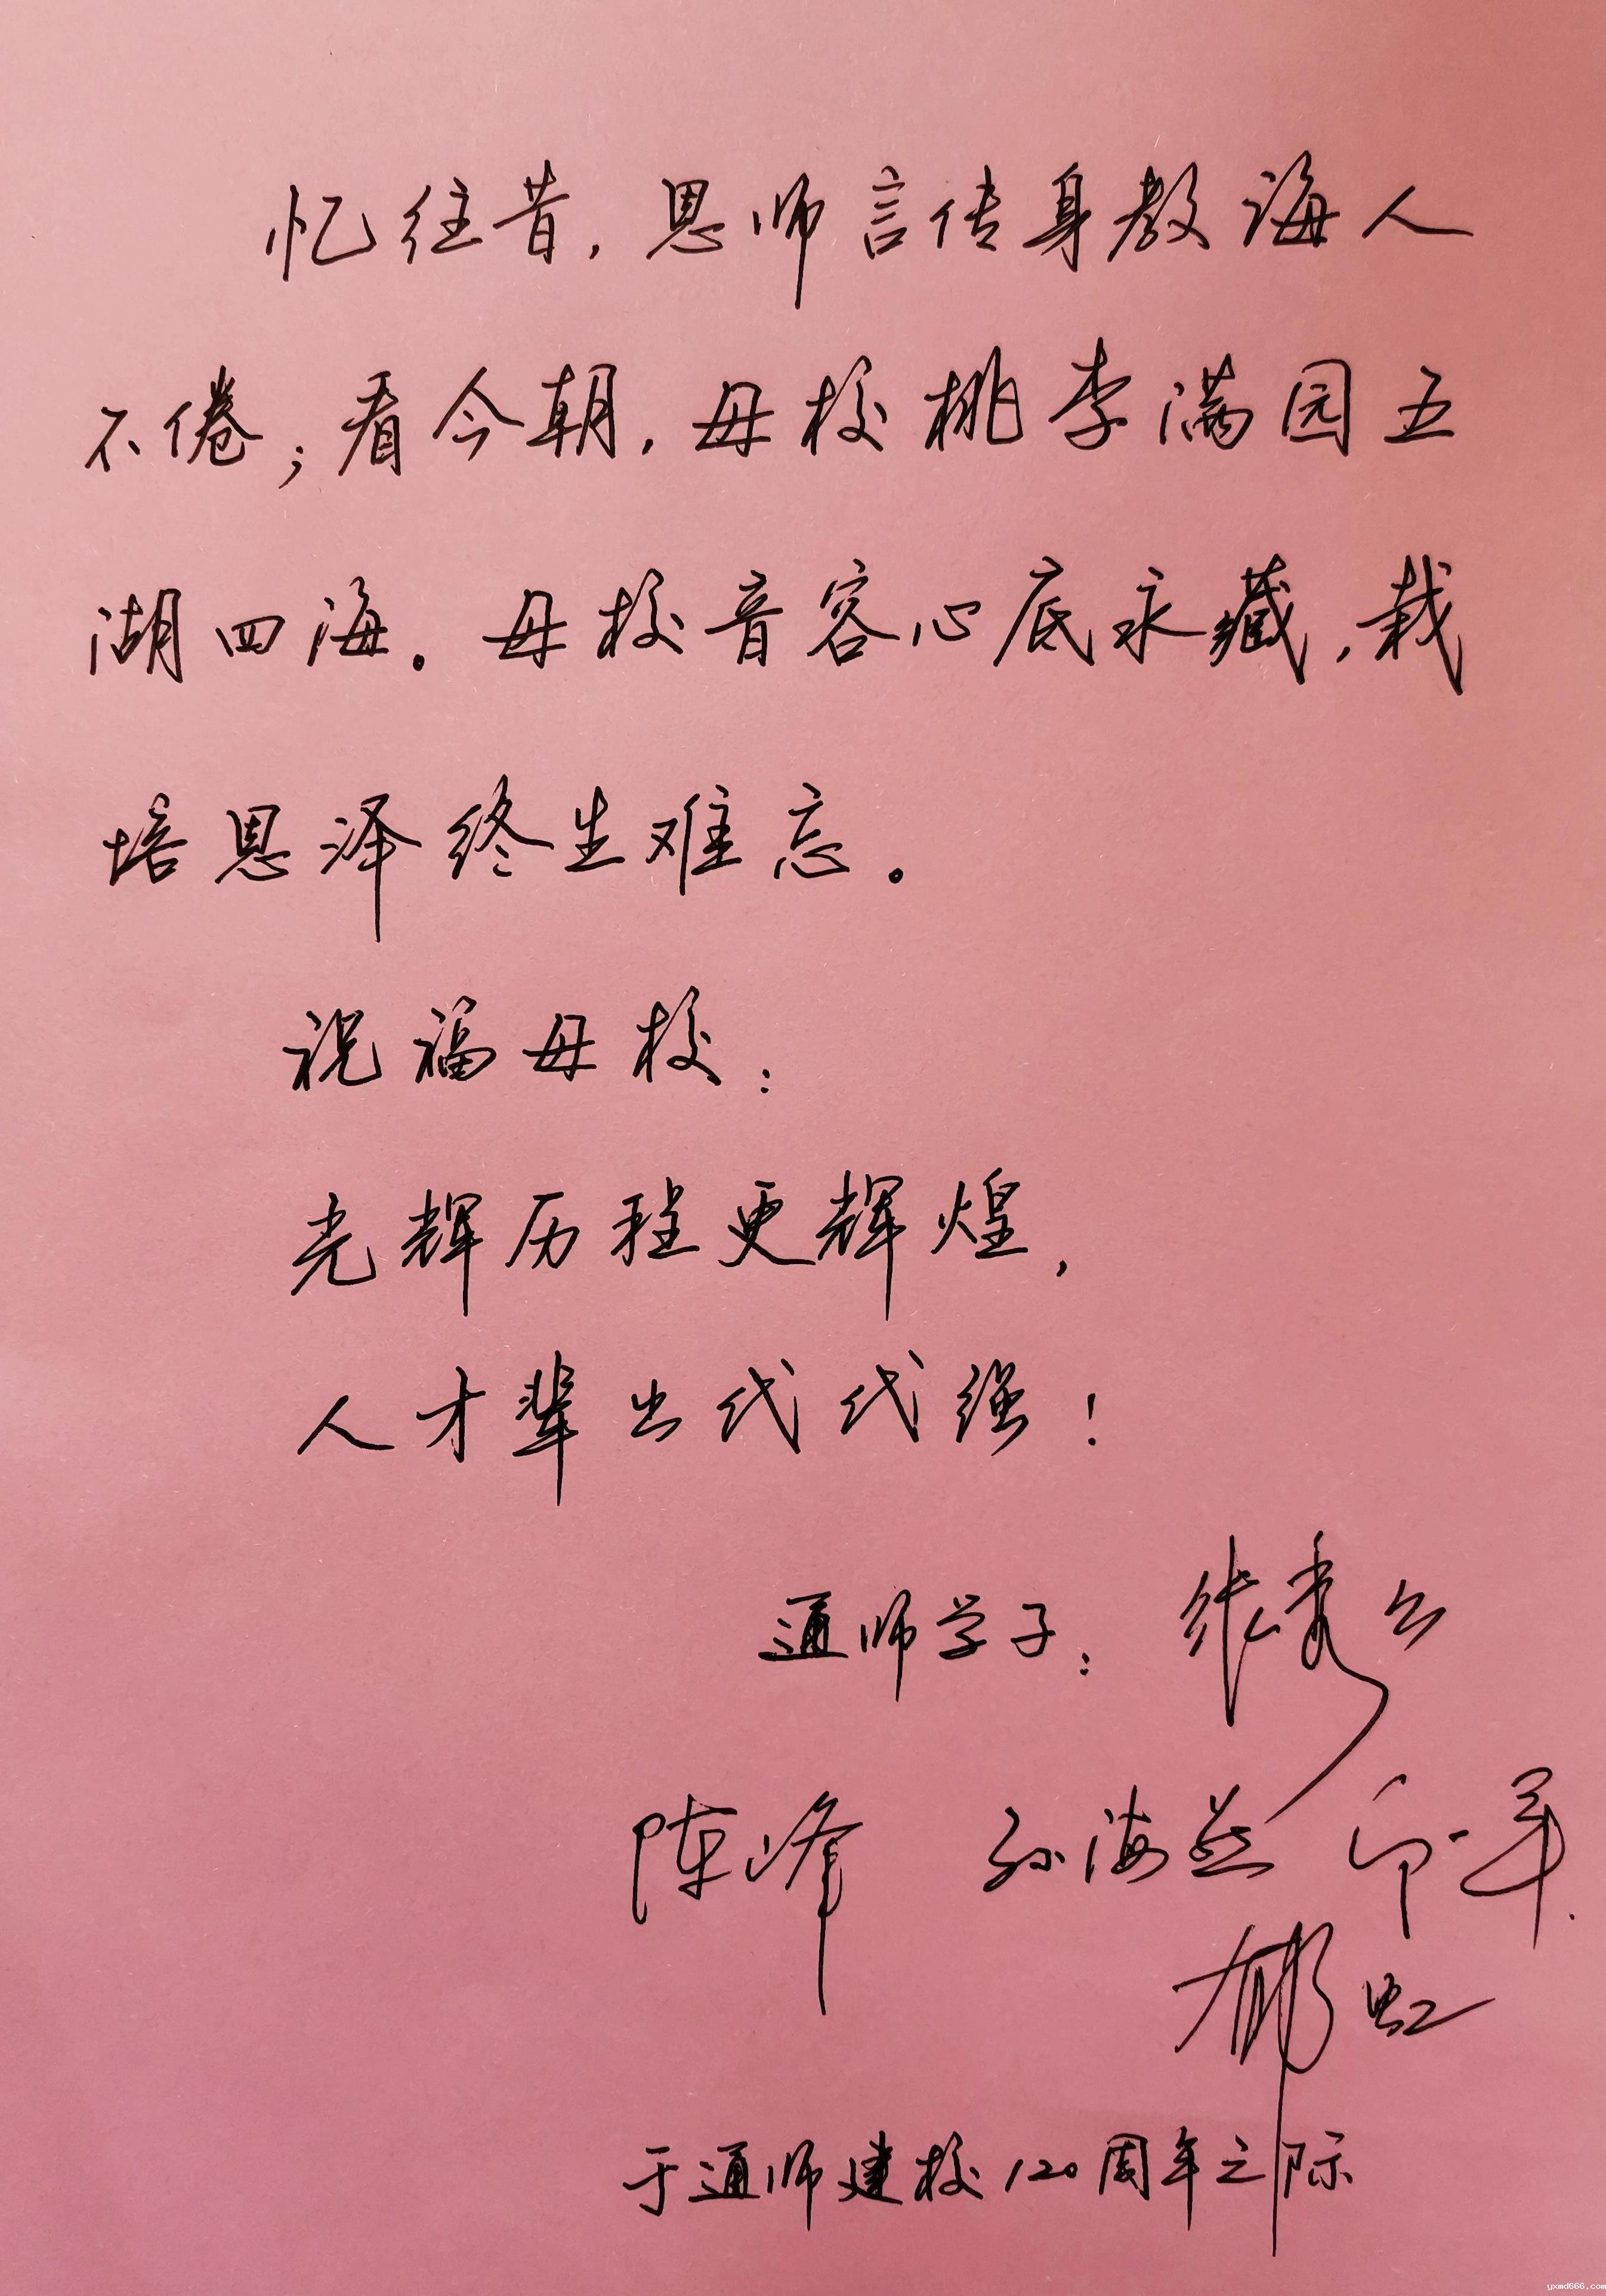 忆往昔，恩师言传身教诲人
不倦；看今朝，母校桃李满园五
湖四海。母校音容心底永藏，栽
培恩泽终生难忘。
祝福母校：
光辉历程更辉煌，
人才辈出代代强！
通师学子：张秀云
陈峰 孙海燕
郁虹
于通师建校120周年之际
yxmd666.com